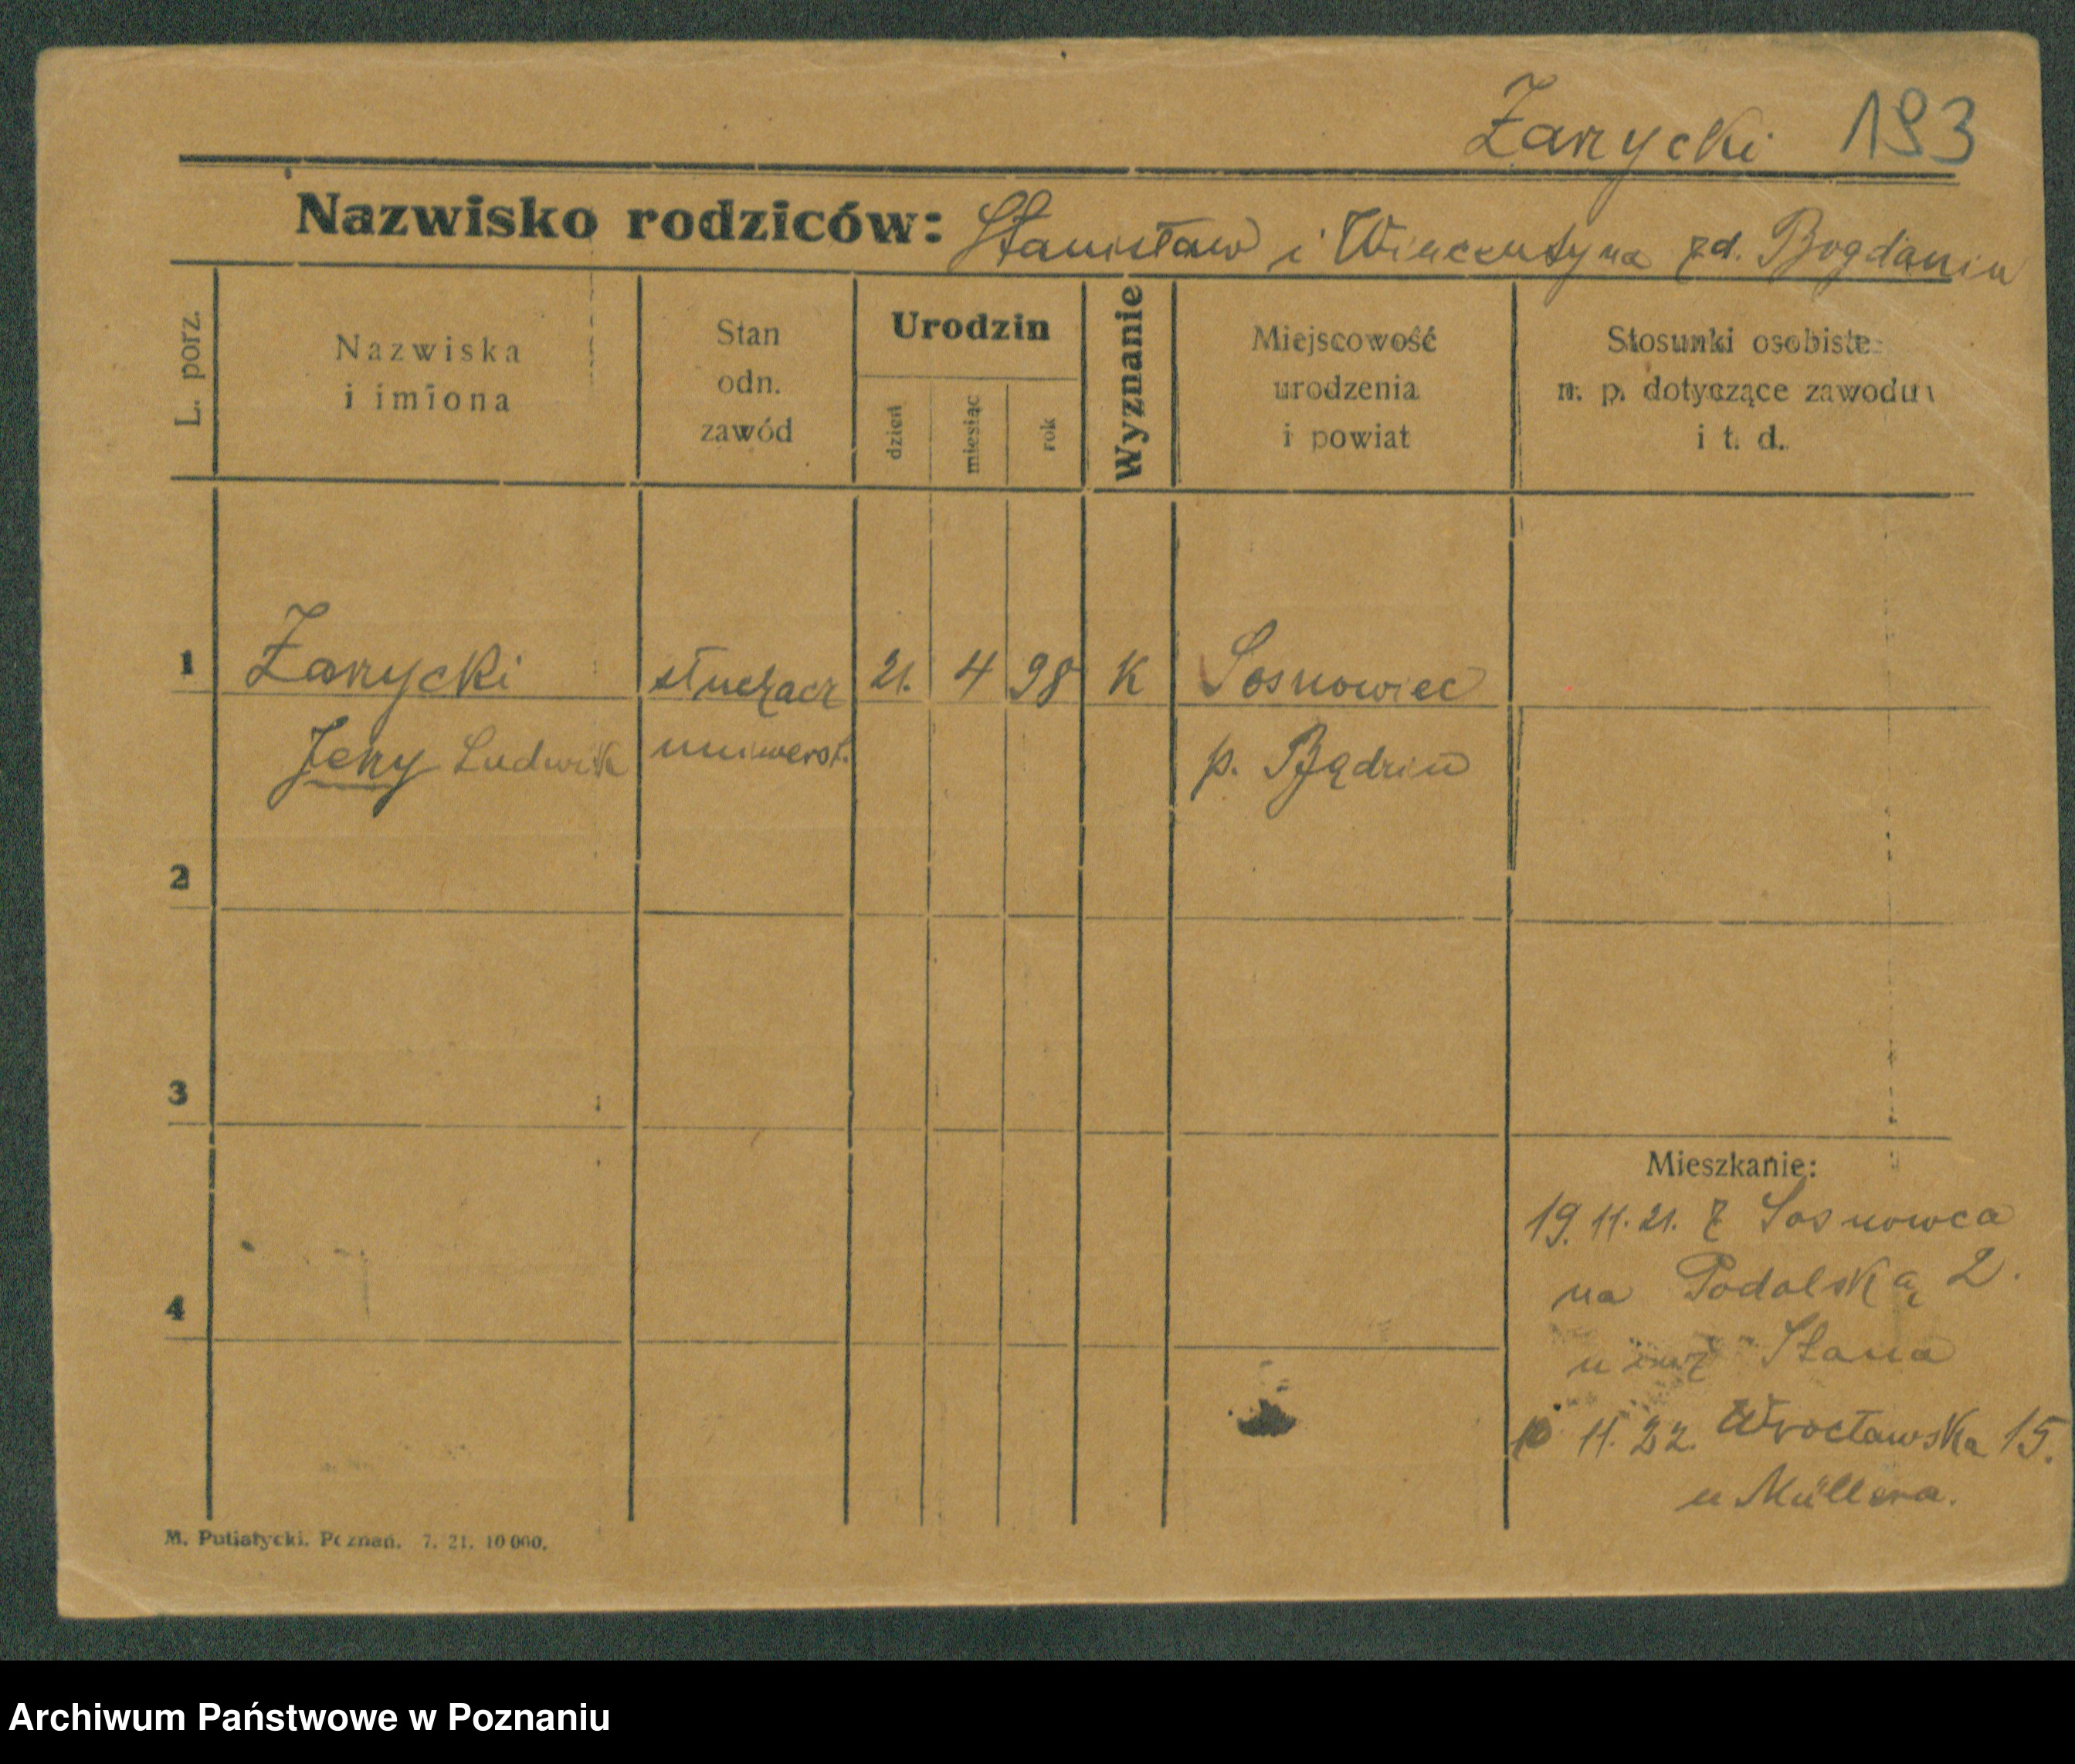 Zarzycki 193
Nazwisko rodziców: Stanisław i Wincentyna zd. Bogdanin
L. porz.
Nazwiska
i imiona
Stan
odn.
zawód
Urodzin
dzień
miesiąc
rok
Wyznanie
Miejscowość
urodzenia
i powiat
Stosunki osobiste
n. p. dotyczące zawodu
i t. d.
1 Zarzycki słuchacz 21. 4 98 K Sosnowiec
Jerzy Ludwik uniwerst. p. Będzin
2
3
4
Mieszkanie:
19. 11. 21. z Sosnowca
na Podolską 2.
u Stana
11. 22. Wrocławska 15.
u Müllera.
M. Putiatycki. Poznań. 7. 21. 10 000.
Archiwum Państwowe w Poznaniu